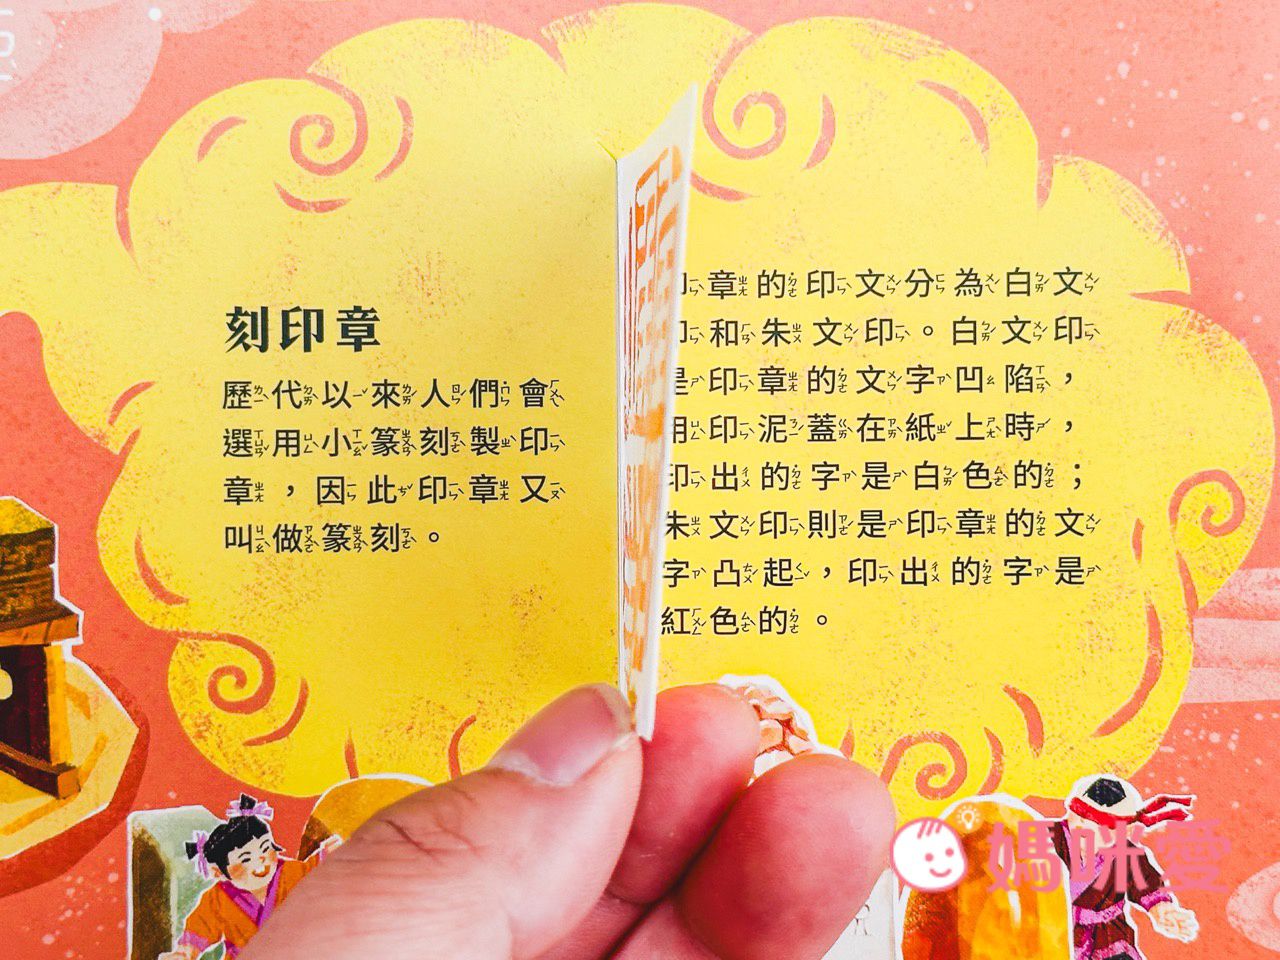 刻印章
歷代以來人們會
選用小篆刻製印
章，因此印章又
叫做篆刻。
章的印文分為白文
印和朱文印。白文印
是印章的文字凹陷，
用印泥蓋在紙上時，
印出的字是白色的；
朱文印則是印章的文
字凸起，印出的字是
紅色的。
媽咪愛